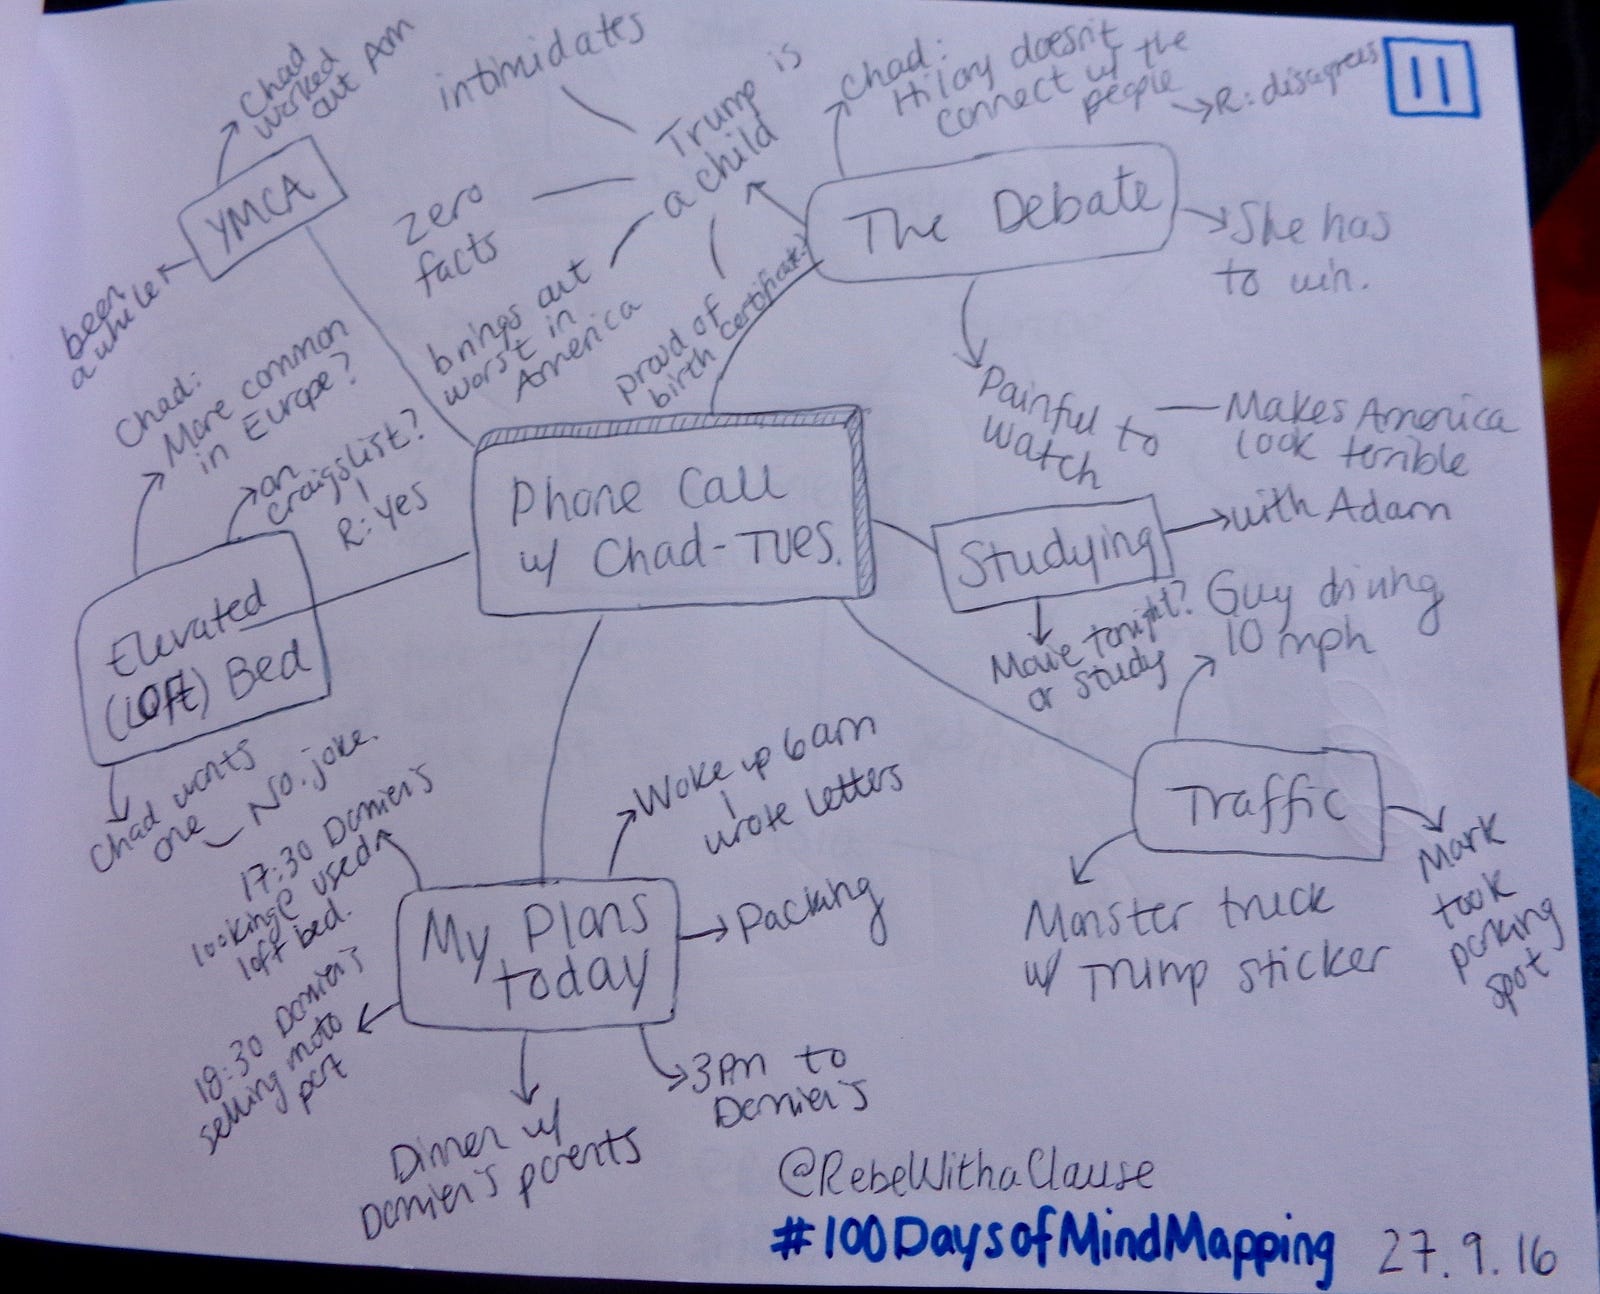 11
Chad
worked
out Am
YMCA
been
a while
intimidates
Trump is
a child
zero
facts
brings out
worst in
America
proud of
birth certificate?
Chad:
Hilary doesn't
connect w/ the
people
R: disagrees
The Debate
She has
to win.
Painful to
watch
Makes America
look terrible
Phone Call
w/ Chad-Tues.
Studying
with Adam
Movie tonight?
or study
Guy driving
10 mph
Traffic
Monster truck
w/ Trump sticker
Mark
took
parking
spot
Chad:
More common
in Europe?
on
craigslist?
R: yes
Elevated
(Loft) Bed
Chad wants
one
No. joke.
My Plans
today
Woke up 6am
wrote letters
Packing
3PM to
Damien's
Dinner w/
Damien's parents
18:30 Damien's
selling moto
part
17:30 Damien's
looking @ used
loft bed.
@RebeWithaClause
#100DaysofMindMapping
27.9.16